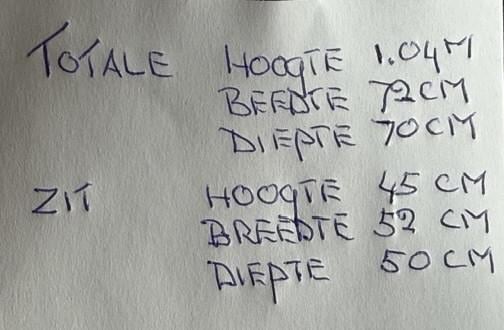 TOTALE HOOGTE 1.04M
BEEDTE 72CM
DIEPTE 70CM
ZIT HOOGTE 45 CM
BREEDTE 52 CM
DIEPTE 50 CM